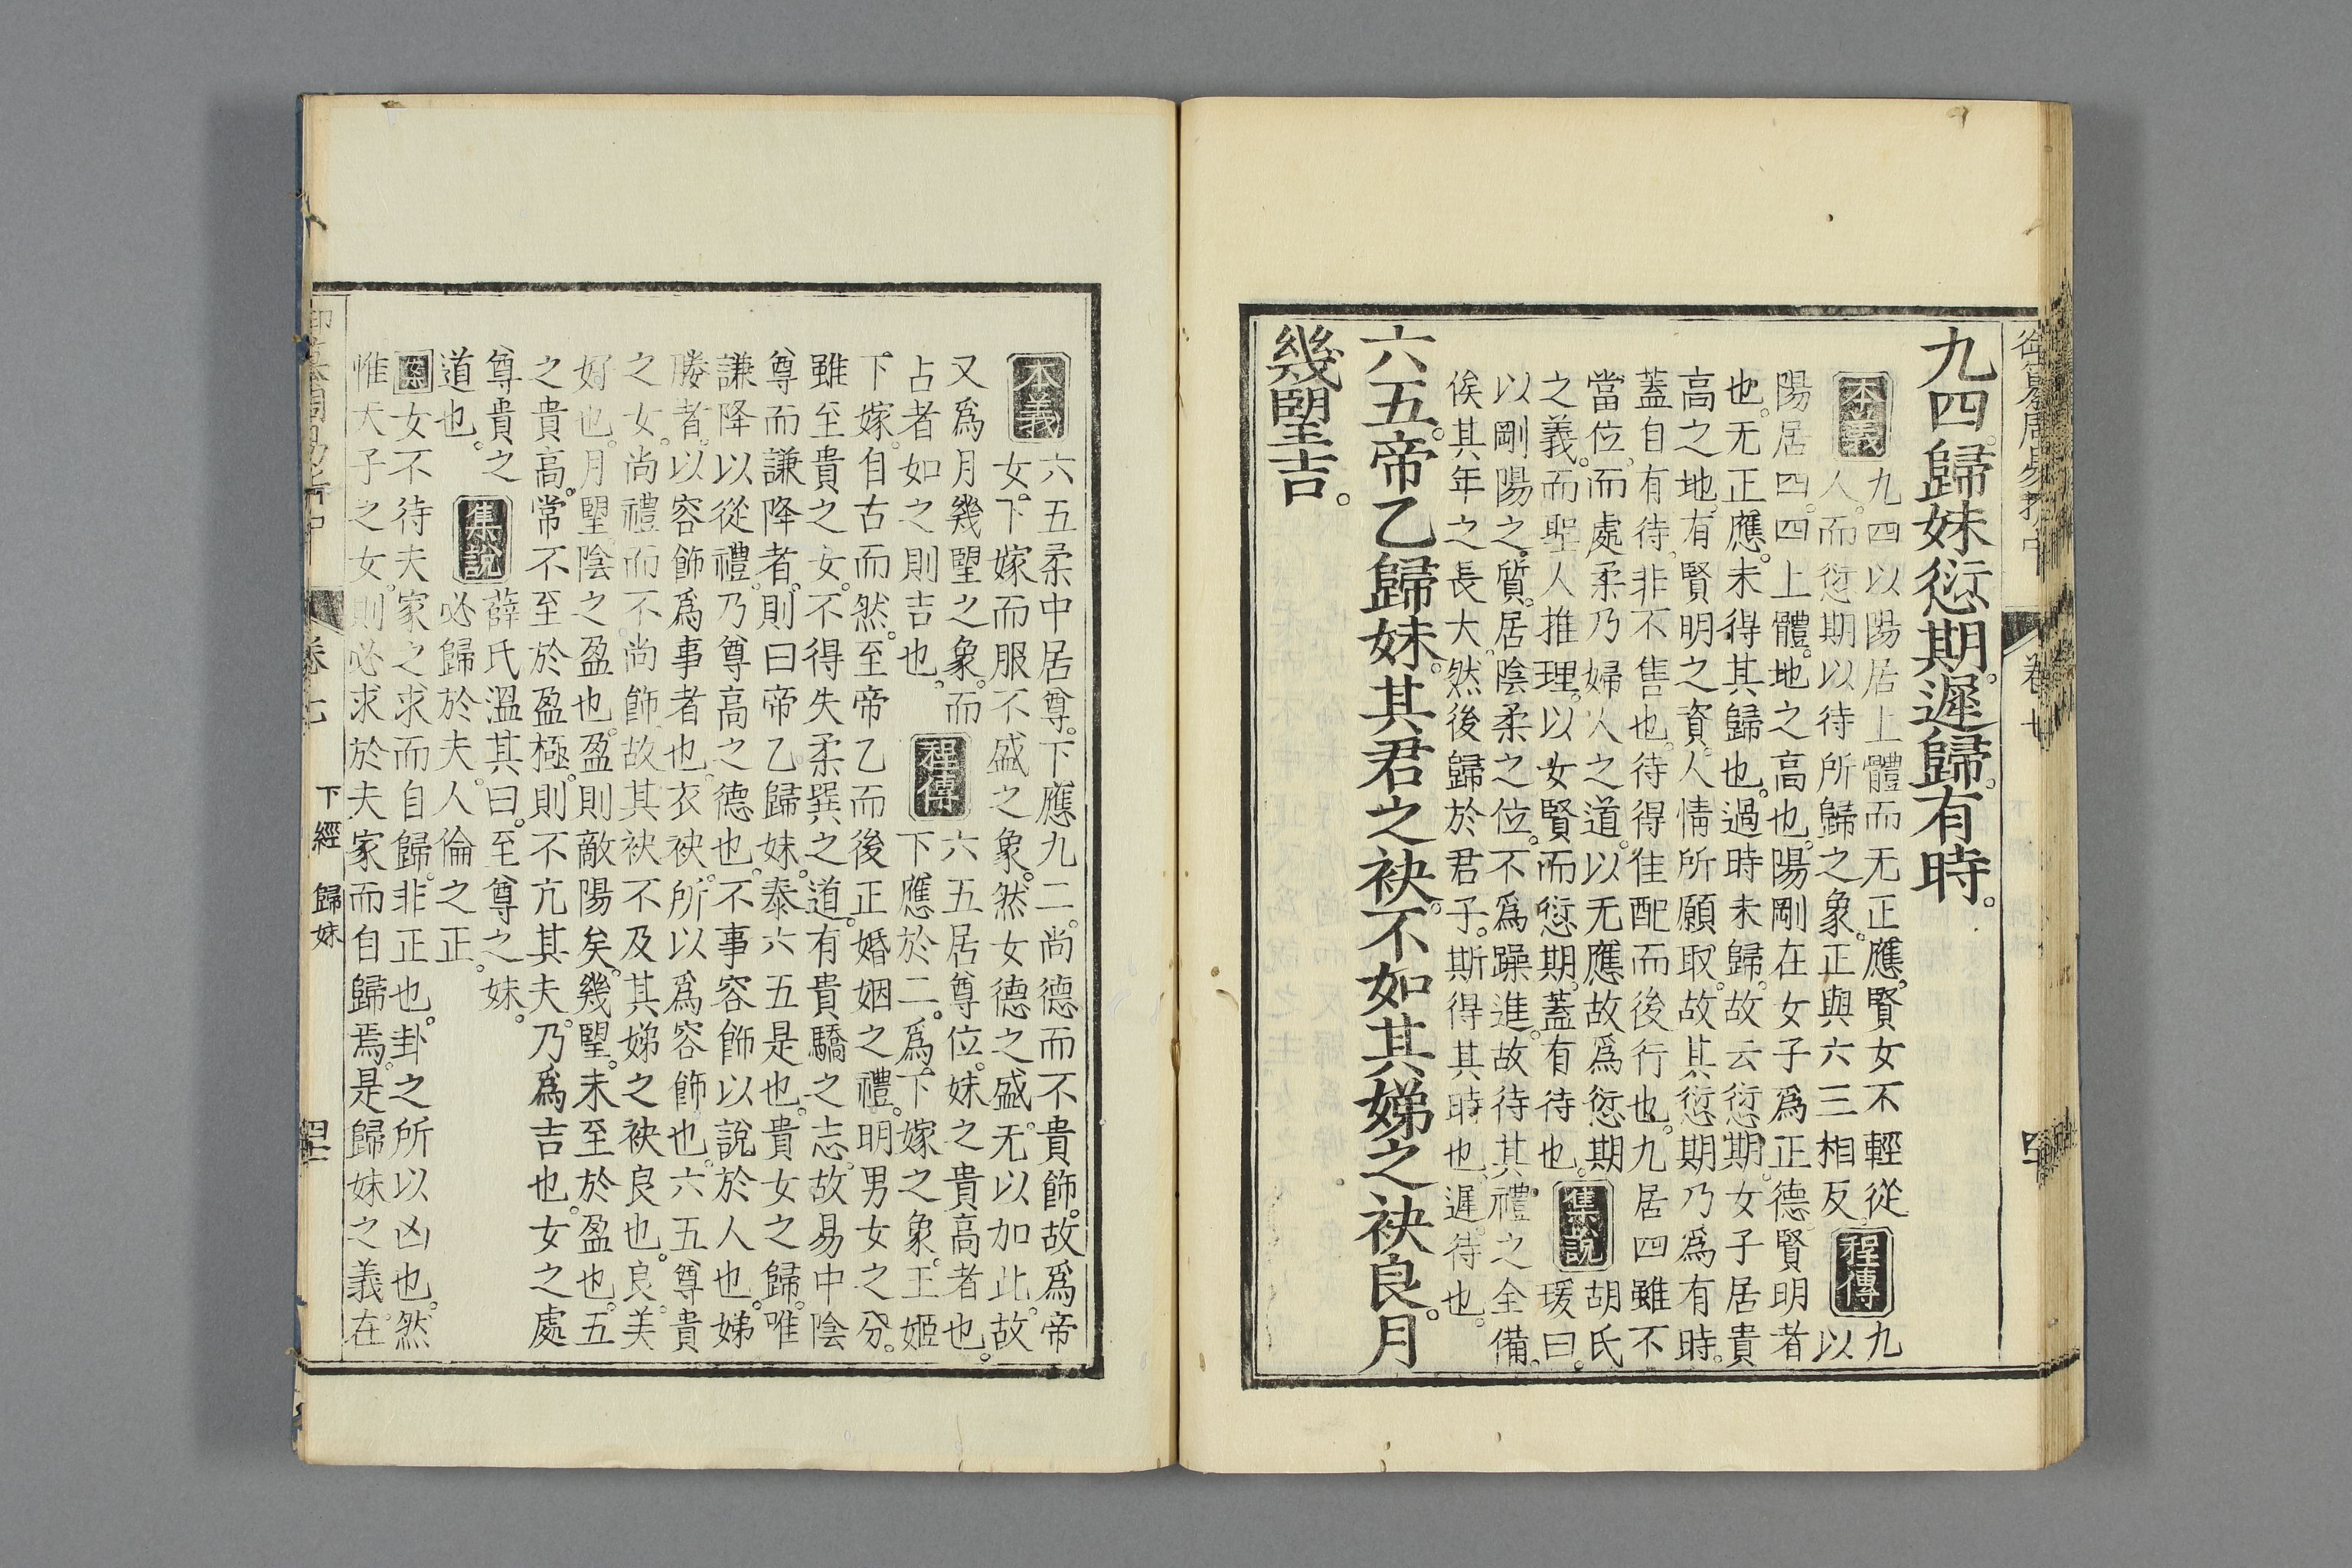 九四。歸妹愆期。遲歸有時。
本義 九四以陽居上體而无正應。賢女不輕從
人。而愆期以待所歸之象。正與六三相反。 程傳 九以
陽居四。四上體。地之高也。陽剛在女子爲正德。賢明者
也。无正應。未得其歸也。過時未歸。故云愆期。女子居貴
高之地。有賢明之資。人情所願取。故其愆期乃爲有時。
蓋自有待。非不售也。待得佳配而後行也。九居四雖不
當位。而處柔乃婦人之道。以无應故爲愆期
之義。而聖人推理。以女賢而愆期。蓋有待也。 集說 胡氏瑗曰。
以剛陽之質。居陰柔之位。不爲躁進。故待其禮之全備。
俟其年之長大。然後歸於君子。斯得其時也。遲。待也。
六五。帝乙歸妹。其君之袂。不如其娣之袂良。月
幾望吉。
御纂周易折中 卷七
本義 六五柔中居尊。下應九二。尚德而不貴飾。故爲帝
女。下嫁而服不盛之象。然女德之盛。无以加此。故
又爲月幾望之象。而
占者如之則吉也。 程傳 六五居尊位。妹之貴高者也。
下應於二。爲下嫁之象。王姬
下嫁。自古而然。至帝乙而後正婚姻之禮。明男女之分。
雖至貴之女。不得失柔巽之道。有貴驕之志。故易中陰
尊而謙降者。則曰帝乙歸妹。泰六五是也。貴女之歸。唯
謙降以從禮。乃尊高之德也。不事容飾以說於人也。娣
媵者。以容飾爲事者也。衣袂。所以爲容飾也。六五尊貴
之女。尚禮而不尚飾。故其袂不及其娣之袂良也。良。美
好也。月望。陰之盈也。盈則敵陽矣。幾望。未至於盈也。五
之貴高。常不至於盈極。則不亢其夫。乃爲吉也。女之處
尊貴之
道也。 集說 薛氏溫其曰。至尊之妹。
必歸於夫。人倫之正。
女不待夫家之求而自歸。非正也。卦之所以凶也。然
惟天子之女。則必求於夫家而自歸焉。是歸妹之義在。
卷七 下經 歸妹